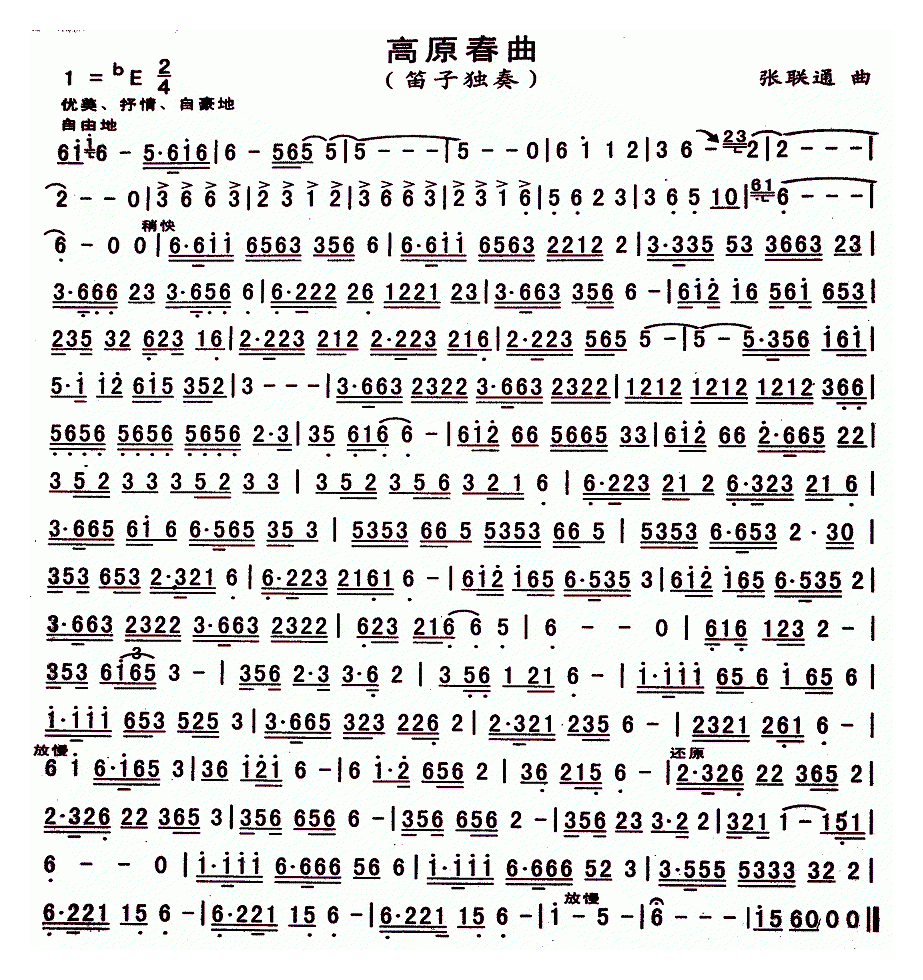 高原春曲
1 = ᵇE 2/4
（笛子独奏）
张联通 曲
优美、抒情、自豪地
自由地
6i i6 - 5·6i6 | 6 - 565 5 | 5 - - - | 5 - - 0 | 6 i 1 2 | 3 6 - 23 2 | 2 - - - |
2 - - 0 | 3 6 6 3 | 2 3 1 2 | 3 6 6 3 | 2 3 1 6 | 5 6 2 3 | 3 6 5 10 | 61 6 - - - |
稍快
6 - 0 0 | 6·6ii 6563 356 6 | 6·6ii 6563 2212 2 | 3·335 53 3663 23 |
3·666 23 3·656 6 | 6·222 26 1221 23 | 3·663 356 6 - | 6i2 i6 56i 653 |
235 32 623 16 | 2·223 212 2·223 216 | 2·223 565 5 - | 5 - 5·356 i6i |
5·i i2 6i5 352 | 3 - - - | 3·663 2322 3·663 2322 | 1212 1212 1212 366 |
5656 5656 5656 2·3 | 35 616 6 - | 6i2 66 5665 33 | 6i2 66 2·665 22 |
3 5 2 3 3 3 5 2 3 3 | 3 5 2 3 5 6 3 2 1 6 | 6·223 21 2 6·323 21 6 |
3·665 6i 6 6·565 35 3 | 5353 66 5 5353 66 5 | 5353 6·653 2 · 30 |
353 653 2·321 6 | 6·223 2161 6 - | 6i2 i65 6·535 3 | 6i2 i65 6·535 2 |
3·663 2322 3·663 2322 | 623 216 6 5 | 6 - - 0 | 616 123 2 - |
353 6i65 3 - | 356 2·3 3·6 2 | 3 56 1 21 6 - | i·iii 65 6 i 65 6 |
i·iii 653 525 3 | 3·665 323 226 2 | 2·321 235 6 - | 2321 261 6 - |
放慢
还原
6 i 6·i65 3 | 36 i2i 6 - | 6 i·2 656 2 | 36 215 6 - | 2·326 22 365 2 |
2·326 22 365 3 | 356 656 6 - | 356 656 2 - | 356 23 3·2 2 | 321 1 - 151 |
6 - - 0 | i·iii 6·666 56 6 | i·iii 6·666 52 3 | 3·555 5333 32 2 |
放慢
6·221 15 6 - | 6·221 15 6 - | 6·221 15 6 - | i - 5 - | 6 - - - | i5 60 0 0 ‖